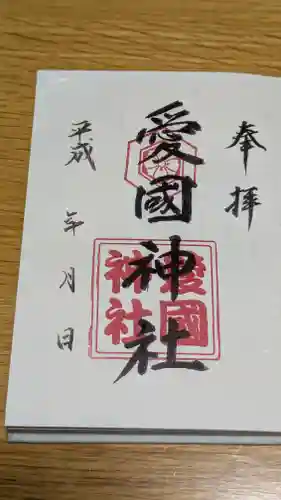 奉拝
愛國神社
愛國
神社
平成 年 月 日